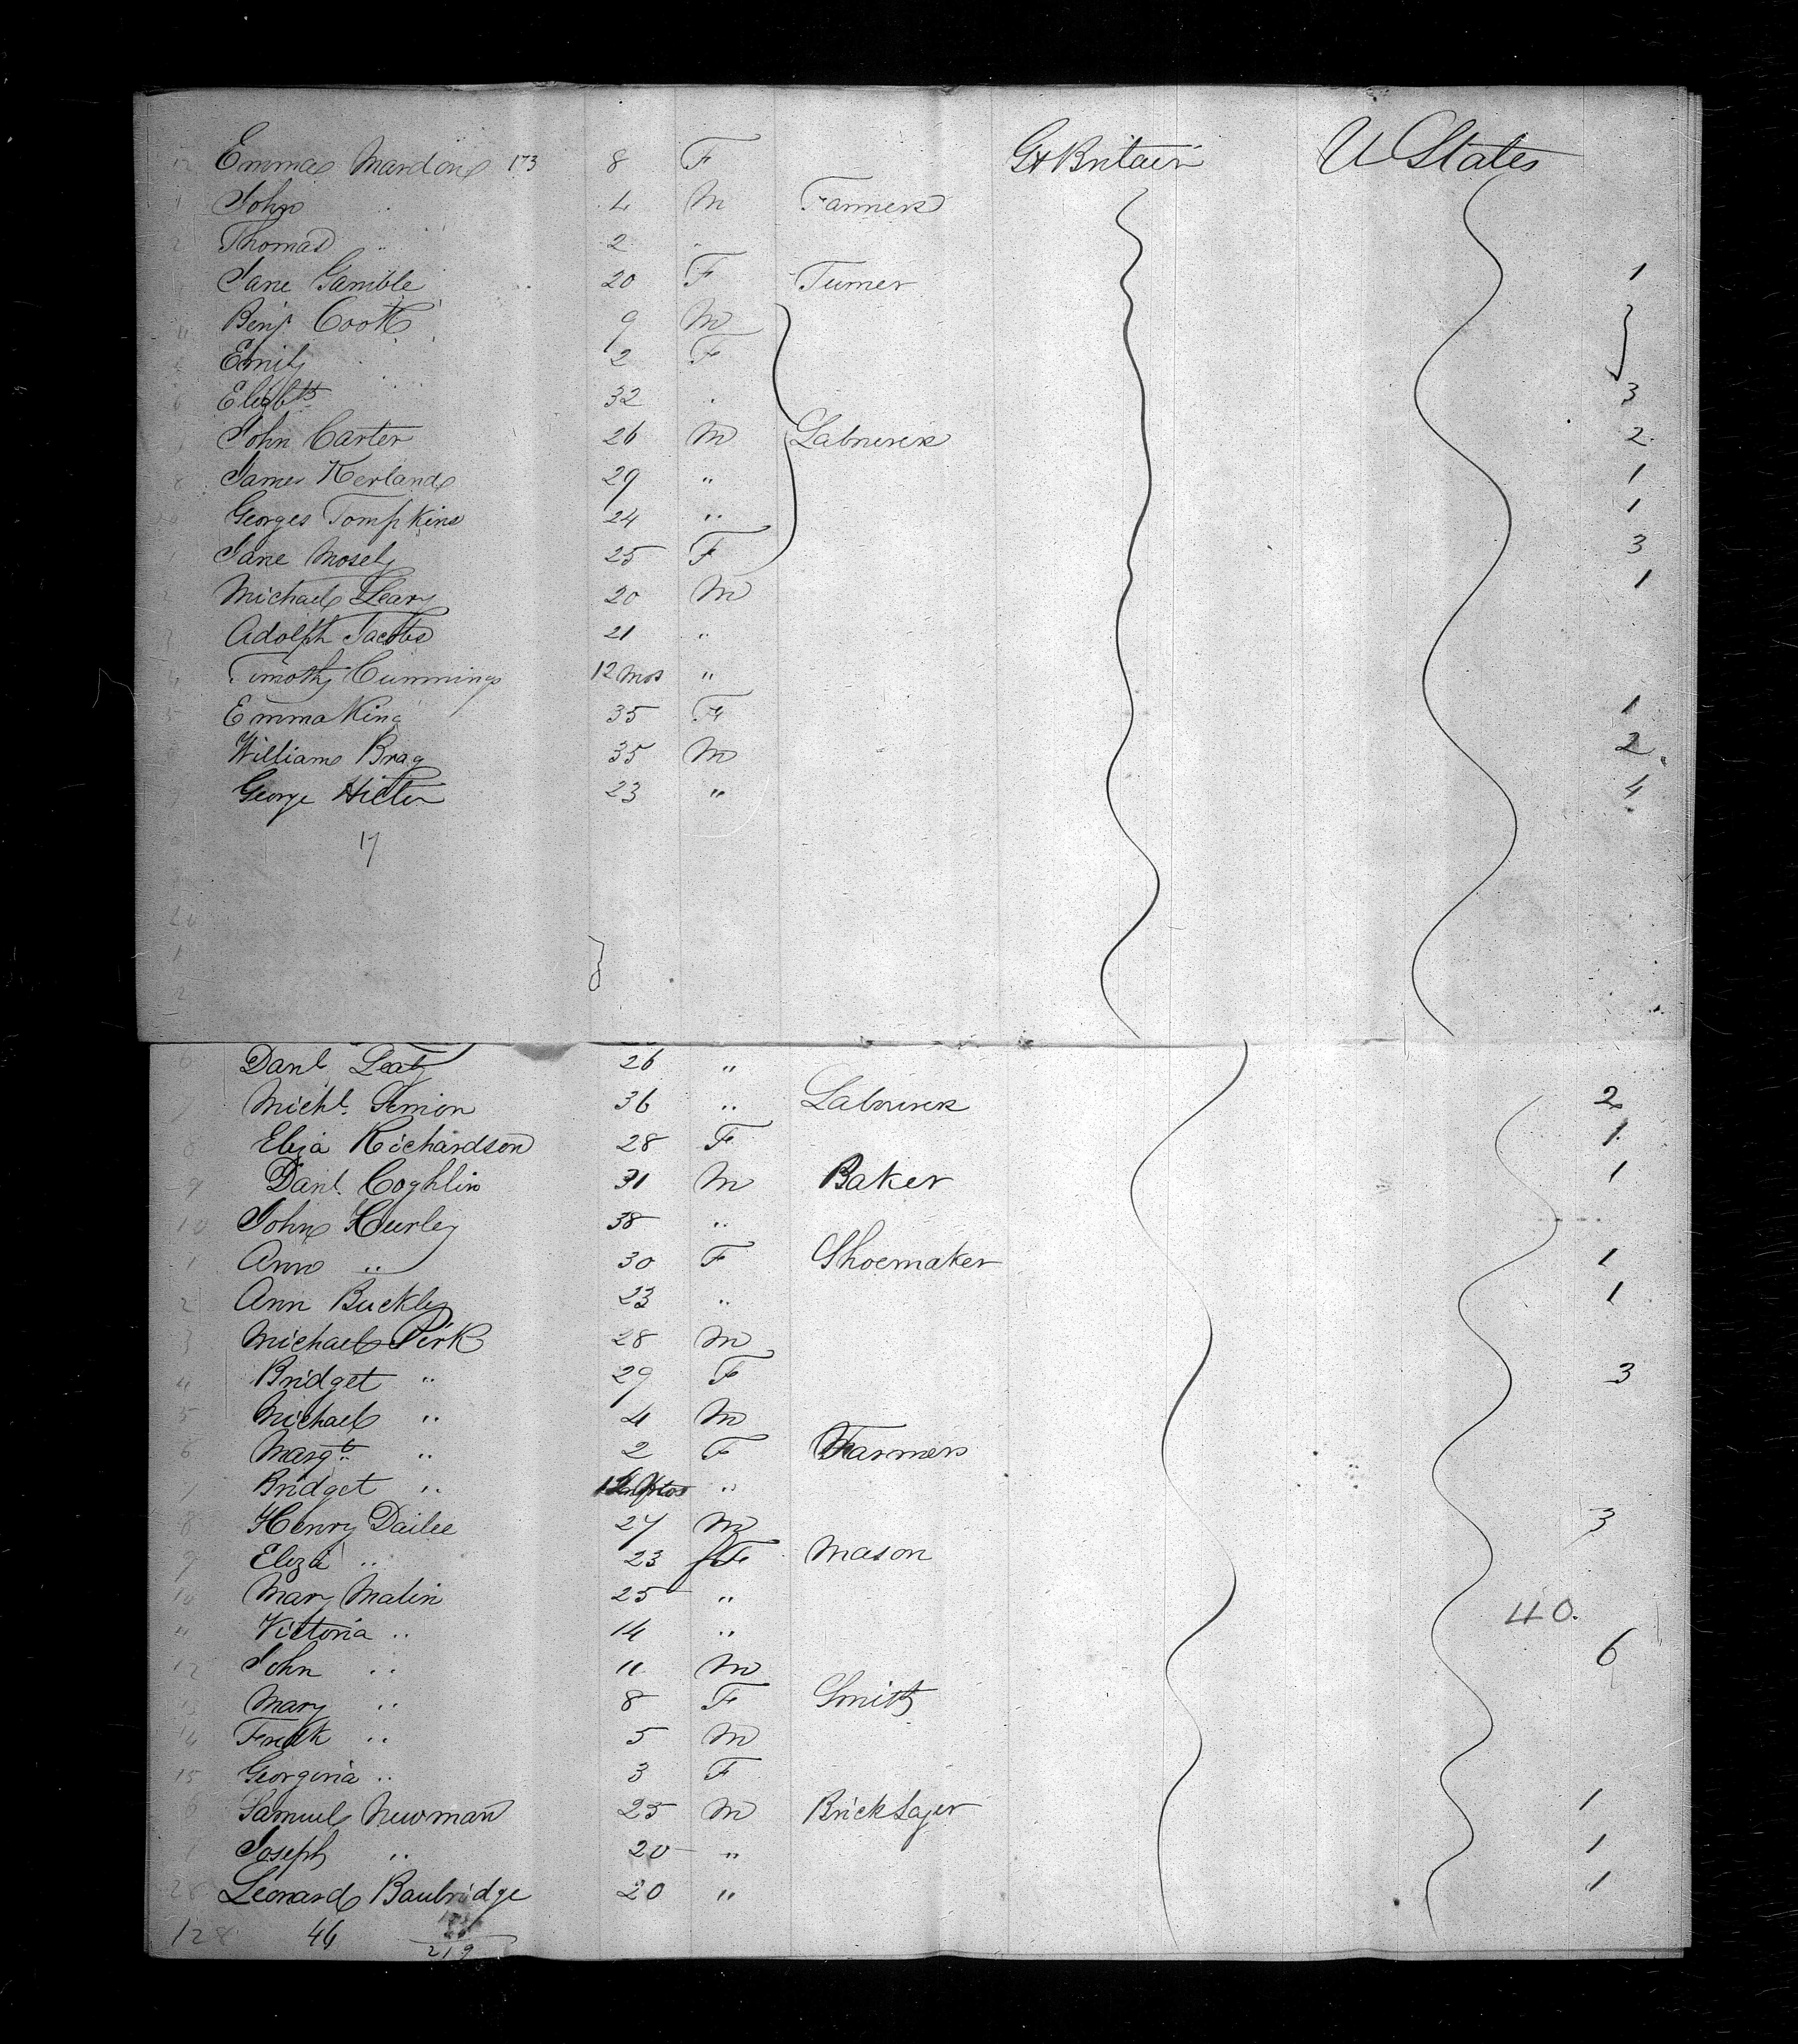 12 Emma Mardon 173 8 F Gt Britain U States
1 John " 4 M Farmers
2 Thomas " 2 "
Jane Gamble 20 F Turner 1
4 Benj. Cook 9 M
Emily " 2 F
6 Elizbth " 32 " 3
John Carter 26 M Labourers 2
8 James Kerland 29 " 1
Georges Tompkins 24 " 1
1 Jane Mosely 25 F 3
2 Michael Leary 20 M 1
Adolph Jacobs 21 "
4 Timothy Cummings 12 mos "
5 Emma King 35 F 1
William Brag 35 M 2
7 George 23 " 4
17
20
1
2
6 Danl. 26 "
Michl. 36 " Labourers 2
8 Eliza Richardson 28 F 1
9 Danl. Coghlin 31 M Baker 1
10 John Hurley 38 "
1 Ann " 30 F Shoemaker 1
2 Ann Buckley 23 " 1
3 Michael Kirk 28 M
4 Bridget " 29 F 3
5 Michael " 4 M
6 Margt " 2 F Farmers
7 Bridget " "
8 Henry Dailee 27 M 3
9 Eliza " 23 F Mason
10 Mary Malin 25 " 40.
11 Victoria " 14 " 6
12 John " 11 M
13 Mary " 8 F Smith
14 Fredk " 5 M
15 Georgina " 3 F
Samuel Newman 25 M Brick Layer 1
1 Joseph " 20 " 1
28 Leonard Baubridge 20 " 1
128 46 219